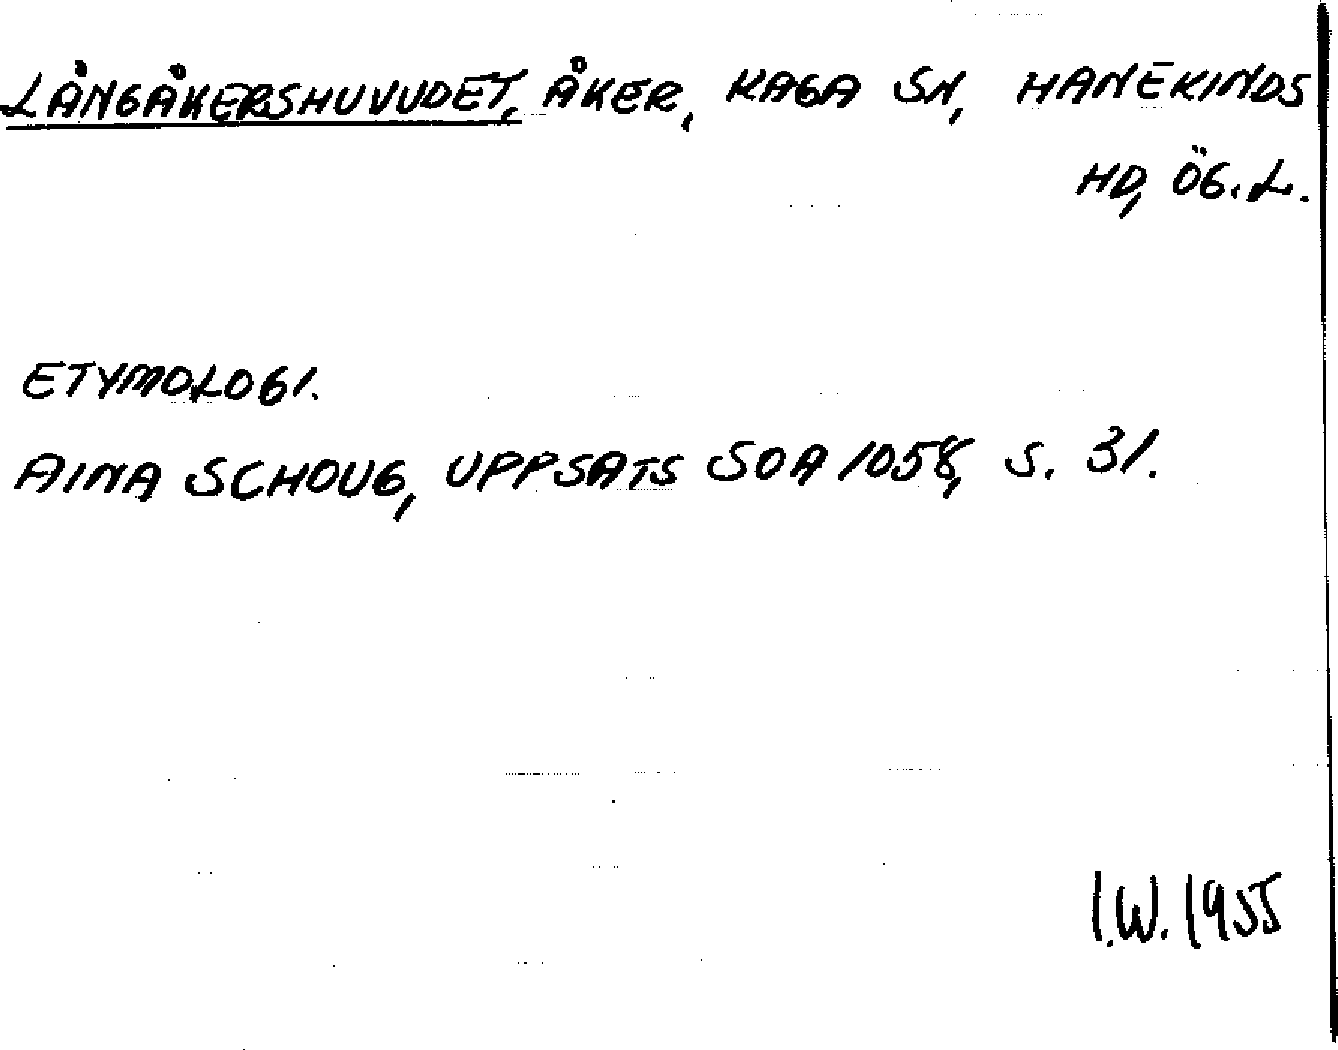 LÅNGÅKERSHUVUDET, ÅKER, KAGA SN, HANEKINDS
HD, ÖG.L.
ETYMOLOGI.
AINA SCHOUG, UPPSATS SOA 1058, S. 31.
I.W. 1955